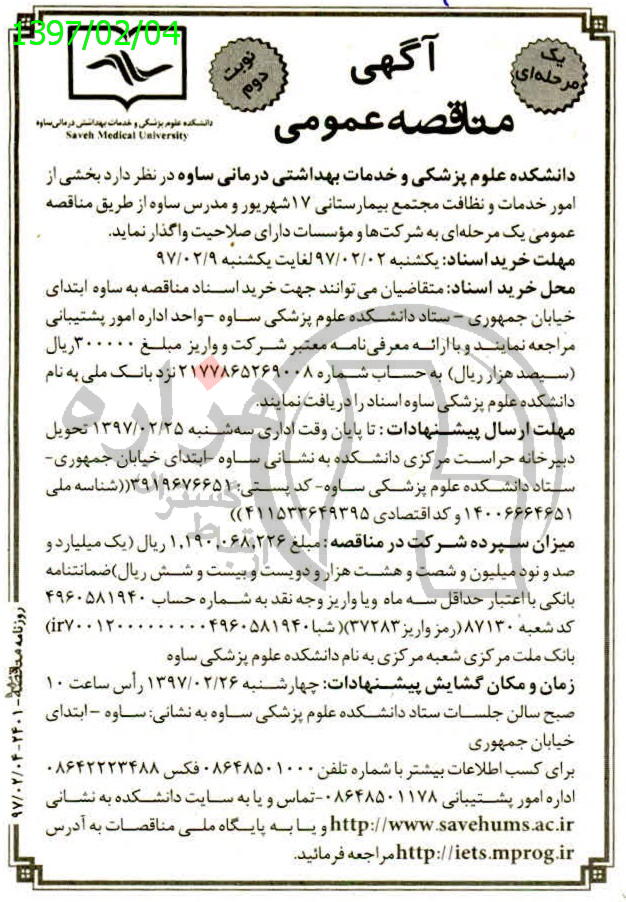 1397/02/04
یک
مرحله‌ای
آگهی
مناقصه عمومی
نوبت
دوم
دانشکده علوم پزشکی و خدمات بهداشتی درمانی ساوه
Saveh Medical University
دانشکده علوم پزشکی و خدمات بهداشتی درمانی ساوه در نظر دارد بخشی از
امور خدمات و نظافت مجتمع بیمارستانی ۱۷شهریور و مدرس ساوه از طریق مناقصه
عمومی یک مرحله‌ای به شرکت‌ها و مؤسسات دارای صلاحیت واگذار نماید.
مهلت خرید اسناد: یکشنبه ۹۷/۰۲/۰۲ لغایت یکشنبه ۹۷/۰۲/۹
محل خرید اسناد: متقاضیان می‌توانند جهت خرید اسناد مناقصه به ساوه ابتدای
خیابان جمهوری – ستاد دانشکده علوم پزشکی ساوه –واحد اداره امور پشتیبانی
مراجعه نمایند و با ارائه معرفی‌نامه معتبر شرکت و واریز مبلغ ۳۰۰۰۰۰ریال
(سیصد هزار ریال) به حساب شماره ۲۱۷۷۸۶۵۲۶۹۰۰۸ نزد بانک ملی به نام
دانشکده علوم پزشکی ساوه اسناد را دریافت نمایند.
مهلت ارسال پیشنهادات: تا پایان وقت اداری سه‌شنبه ۱۳۹۷/۰۲/۲۵ تحویل
دبیرخانه حراست مرکزی دانشکده به نشانی ساوه -ابتدای خیابان جمهوری-
ستاد دانشکده علوم پزشکی ساوه- کد پستی: ۳۹۱۹۶۷۶۶۵۱((شناسه ملی
۱۴۰۰۶۶۶۴۶۵۱ و کد اقتصادی ۴۱۱۵۳۳۶۴۹۳۹۵))
میزان سپرده شرکت در مناقصه: مبلغ ۱,۱۹۰,۰۶۸,۲۲۶ ریال (یک میلیارد و
صد و نود میلیون و شصت و هشت هزار و دویست و بیست و شش ریال)ضمانتنامه
بانکی با اعتبار حداقل سه ماه و یا واریز وجه نقد به شماره حساب ۴۹۶۰۵۸۱۹۴۰
کد شعبه ۸۷۱۳۰(رمز واریز ۳۷۲۸۳)( شبا ir۷۰۰۱۲۰۰۰۰۰۰۰۰۰۰۴۹۶۰۵۸۱۹۴۰)
بانک ملت مرکزی شعبه مرکزی به نام دانشکده علوم پزشکی ساوه
زمان و مکان گشایش پیشنهادات: چهارشنبه ۱۳۹۷/۰۲/۲۶ رأس ساعت ۱۰
صبح سالن جلسات ستاد دانشکده علوم پزشکی ساوه به نشانی: ساوه – ابتدای
خیابان جمهوری
برای کسب اطلاعات بیشتر با شماره تلفن ۰۸۶۴۸۵۰۱۰۰۰ فکس ۰۸۶۴۲۲۲۳۴۸۸
اداره امور پشتیبانی ۰۸۶۴۸۵۰۱۱۷۸-تماس و یا به سایت دانشکده به نشانی
http://www.savehums.ac.ir و یا به پایگاه ملی مناقصات به آدرس
http://iets.mprog.ir مراجعه فرمائید.
روزنامه مناقصه - ۲۴۰۱ - ۹۷/۰۲/۰۴
هزاره
گسترش
ارتباط